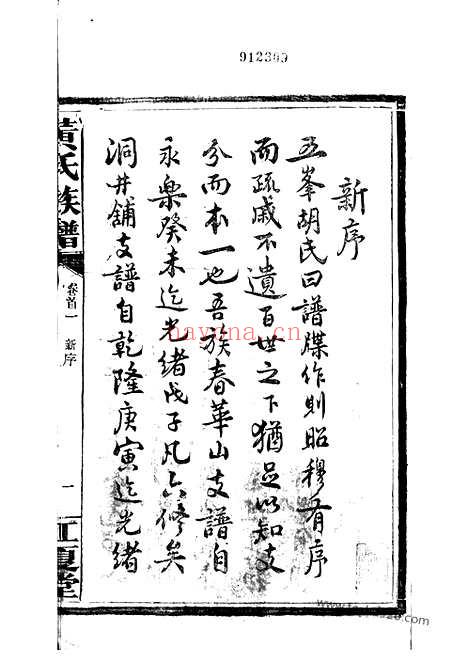 912309
新序
五峯胡氏曰譜牒作則昭穆有序
而疏戚不遺百世之下猶足以知支
分而本一也吾族春華山支譜自
永樂癸未迄光緒戊子凡六修矣
洞井鋪支譜自乾隆庚寅迄光緒
黃氏族譜
卷首一
新序
一
江夏堂
nayuna.cn